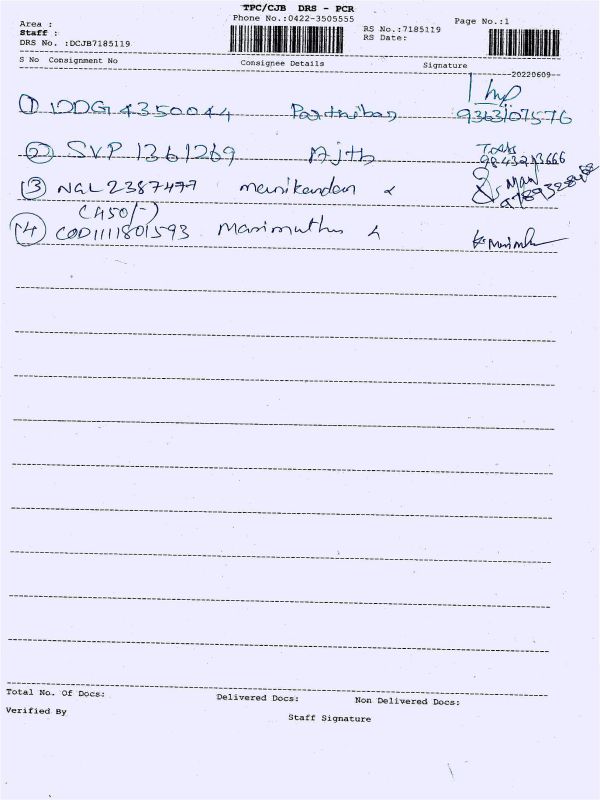 TPC/CJB DRS - PCR
Area : Phone No.:0422-3505555 Page No.:1
Staff : RS No.:7185119
DRS No. :DCJB7185119 RS Date:
S No Consignment No Consignee Details Signature
20220609
1 DDG4350044 Parthiban 9363107576
2 SVP 1361269 Ajth
3 NGL2387477 manikandan
(450/-)
4 COD1111801593 Marimuthu
Total No. Of Docs: Delivered Docs: Non Delivered Docs:
Verified By Staff Signature